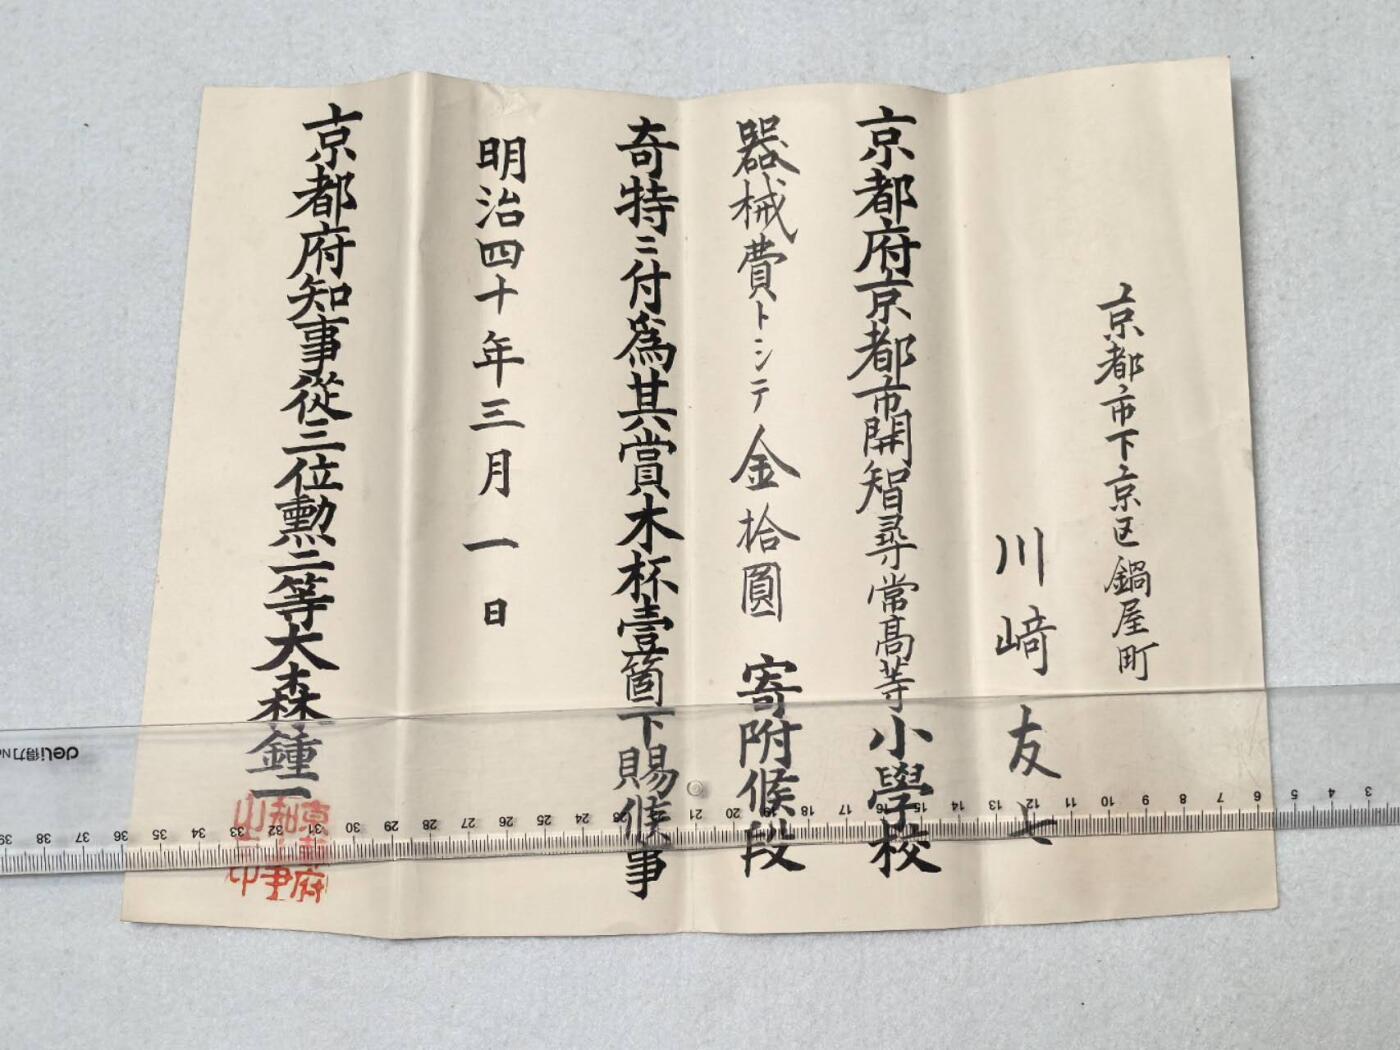 京都市下京区鍋屋町
川﨑友七
京都府京都市開智尋常高等小學校
器械費トシテ金拾圓寄附候段
奇特ニ付為其賞木杯壹箇下賜候事
明治四十年三月一日
京都府知事從三位勲二等大森鍾一
京都府
知事
之印
deli得力
39 38 37 36 35 34 33 32 31 30 29 28 27 26 25 24 23 22 21 20 19 18 17 16 15 14 13 12 11 10 9 8 7 6 5 4 3